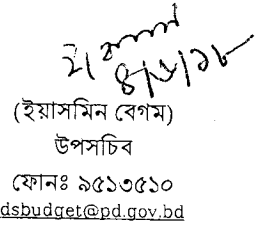 ৪/৬/১৮
(ইয়াসমিন বেগম)
উপসচিব
ফোনঃ ৯৫১৩৫১০
dsbudget@pd.gov.bd